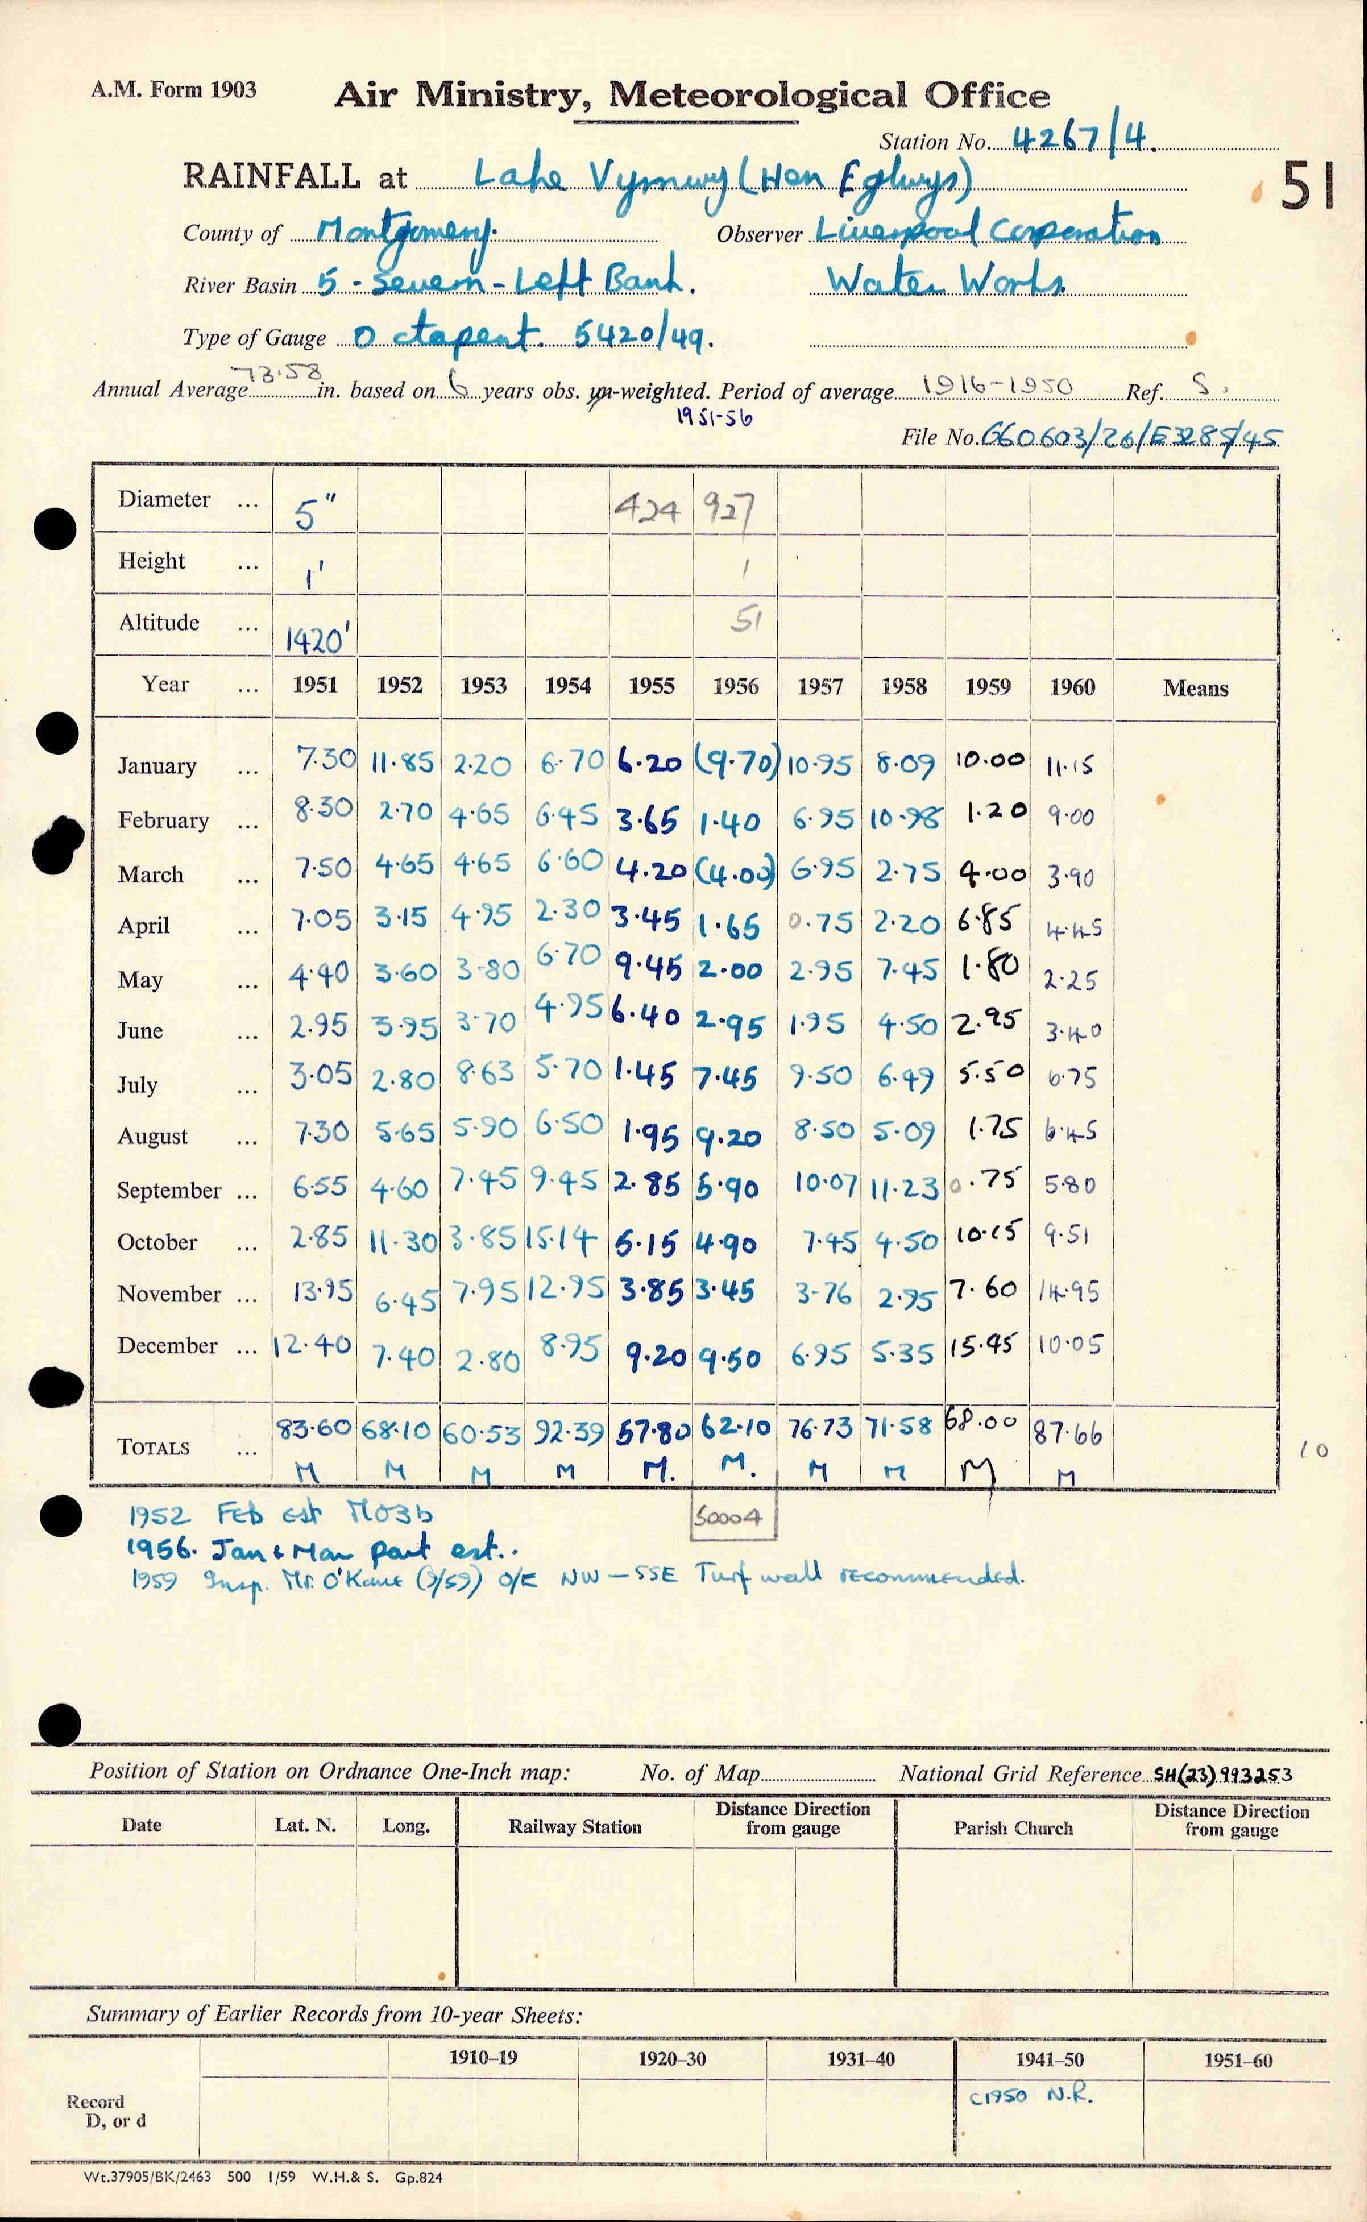 A.M. Form 1903
Air Ministry, Meteorological Office
Station No. 4267/4.
RAINFALL at Lake Vyrnwy (Hen Eglwys)
51
County of Montgomery. Observer Liverpool Corporation
River Basin 5 - Severn - Left Bank. Water Works.
Type of Gauge Octapent. 5420/49.
Annual Average 73.58 in. based on 6 years obs. un-weighted. Period of average 1916-1950 Ref. S.
1951-56
File No. 660603/26/E3285/45
Diameter ... 5" 424 927
Height ... 1' 1
Altitude ... 1420' 51
Year ... 1951 1952 1953 1954 1955 1956 1957 1958 1959 1960 Means
January ... 7.30 11.85 2.20 6.70 6.20 (9.70) 10.95 8.09 10.00 11.15
February ... 8.30 2.70 4.65 6.45 3.65 1.40 6.95 10.98 1.20 9.00
March ... 7.50 4.65 4.65 6.60 4.20 (4.00) 6.95 2.75 4.00 3.90
April ... 7.05 3.15 4.95 2.30 3.45 1.65 0.75 2.20 6.85 4.45
May ... 4.40 3.60 3.80 6.70 9.45 2.00 2.95 7.45 1.80 2.25
June ... 2.95 3.95 3.70 4.95 6.40 2.95 1.95 4.50 2.95 3.40
July ... 3.05 2.80 8.63 5.70 1.45 7.45 9.50 6.49 5.50 6.75
August ... 7.30 5.65 5.90 6.50 1.95 9.20 8.50 5.09 1.75 6.45
September ... 6.55 4.60 7.45 9.45 2.85 5.90 10.07 11.23 0.75 5.80
October ... 2.85 11.30 3.85 15.14 5.15 4.90 7.45 4.50 10.65 9.51
November ... 13.95 6.45 7.95 12.95 3.85 3.45 3.76 2.95 7.60 14.95
December ... 12.40 7.40 2.80 8.95 9.20 9.50 6.95 5.35 15.95 10.05
TOTALS ... 83.60 68.10 60.53 92.39 57.80 62.10 76.73 71.58 68.00 87.66
M M M M M. M. M M M M
10
1952 Feb est MO3b
50004
1956. Jan & Mar part est..
1959 Insp. Mr. O'Kane (9/59) O/E NW - SSE Turf wall recommended.
Position of Station on Ordnance One-Inch map: No. of Map National Grid Reference SH(23)993253
Date Lat. N. Long. Railway Station Distance Direction from gauge Parish Church Distance Direction from gauge
Summary of Earlier Records from 10-year Sheets:
1910–19 1920–30 1931–40 1941–50 1951–60
Record D, or d
C1950 N.R.
Wt.37905/BK/2463 500 1/59 W.H.& S. Gp.824